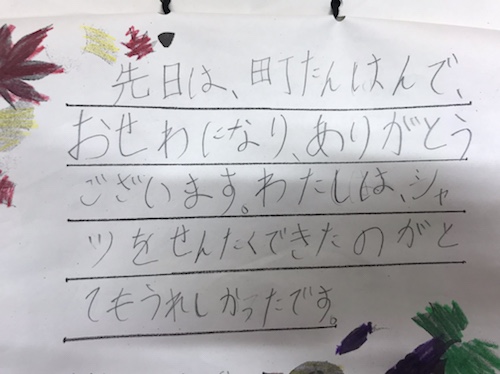 先日は、町たんけんで、
おせわになり、ありがとう
ございます。わたしは、シャ
ツをせんたくできたのがと
てもうれしかったです。